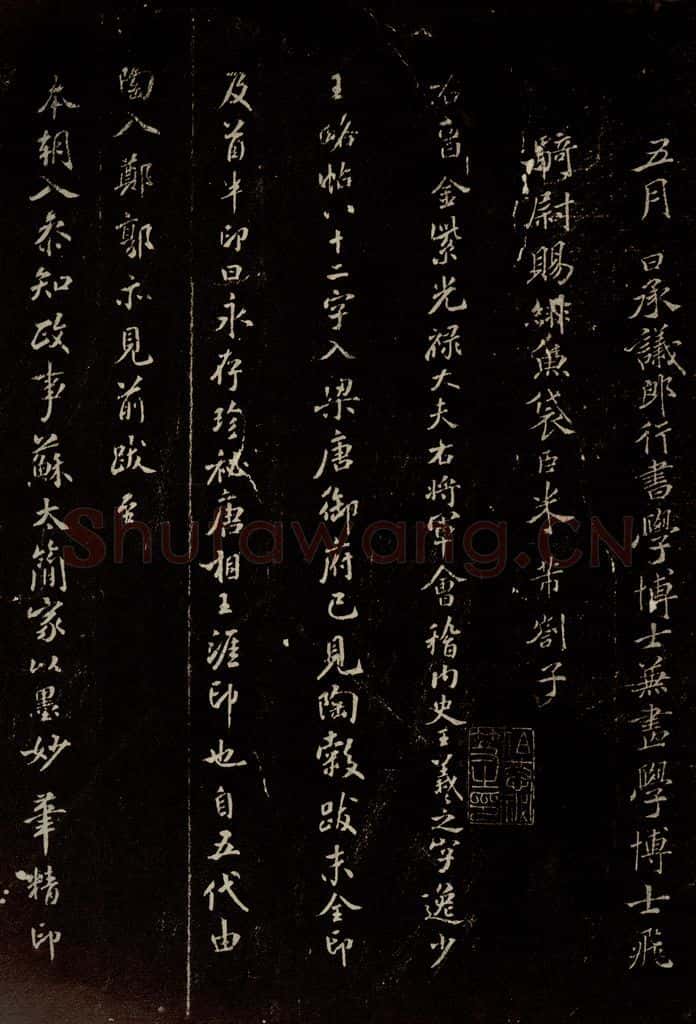 五月 日承議郎行書學博士蕪畫學博士飛
騎尉賜緋魚袋臣米芾劄子
右晉金紫光祿大夫右將軍會稽內史王羲之字逸少
王略帖八十二字入梁唐御府已見陶穀跋末全印
及首半印曰永存珍祕唐相王涯印也自五代由
陶入鄭郭亦見前跋至
本朝入叅知政事蘇太簡家以墨妙筆精印
Shufawang.CN